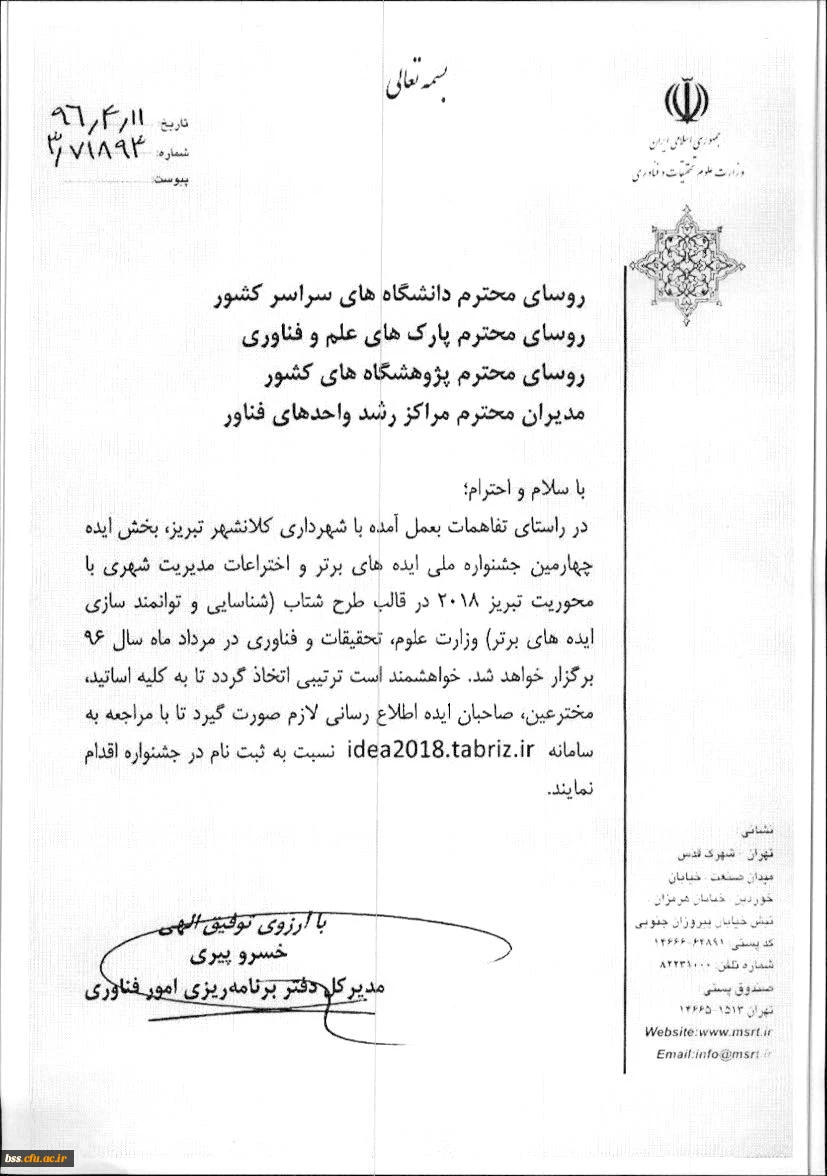 بسمه تعالی
جمهوری اسلامی ایران
وزارت علوم تحقیقات و فناوری
تاریخ: ۹۶٫۴٫۱۱
شماره: ۳٫۷۱۸۹۴
پیوست:
روسای محترم دانشگاه های سراسر کشور
روسای محترم پارک های علم و فناوری
روسای محترم پژوهشگاه های کشور
مدیران محترم مراکز رشد واحدهای فناور
با سلام و احترام؛
در راستای تفاهمات بعمل آمده با شهرداری کلانشهر تبریز، بخش ایده
چهارمین جشنواره ملی ایده های برتر و اختراعات مدیریت شهری با
محوریت تبریز ۲۰۱۸ در قالب طرح شتاب (شناسایی و توانمند سازی
ایده های برتر) وزارت علوم، تحقیقات و فناوری در مرداد ماه سال ۹۶
برگزار خواهد شد. خواهشمند است ترتیبی اتخاذ گردد تا به کلیه اساتید،
مخترعین، صاحبان ایده اطلاع رسانی لازم صورت گیرد تا با مراجعه به
سامانه idea2018.tabriz.ir نسبت به ثبت نام در جشنواره اقدام
نمایند.
با آرزوی توفیق الهی
خسرو پیری
مدیر کل دفتر برنامه‌ریزی امور فناوری
نشانی:
تهران - شهرک قدس
میدان صنعت - خیابان
خوردین - خیابان هرمزان
نبش خیابان پیروزان جنوبی
کد پستی: ۶۴۸۹۱-۱۴۶۶۶
شماره تلفن: ۸۲۲۳۱۰۰۰
صندوق پستی:
تهران ۱۵۱۳-۱۴۶۶۵
Website:www.msrt.ir
Email:info@msrt.ir
bss.cfu.ac.ir